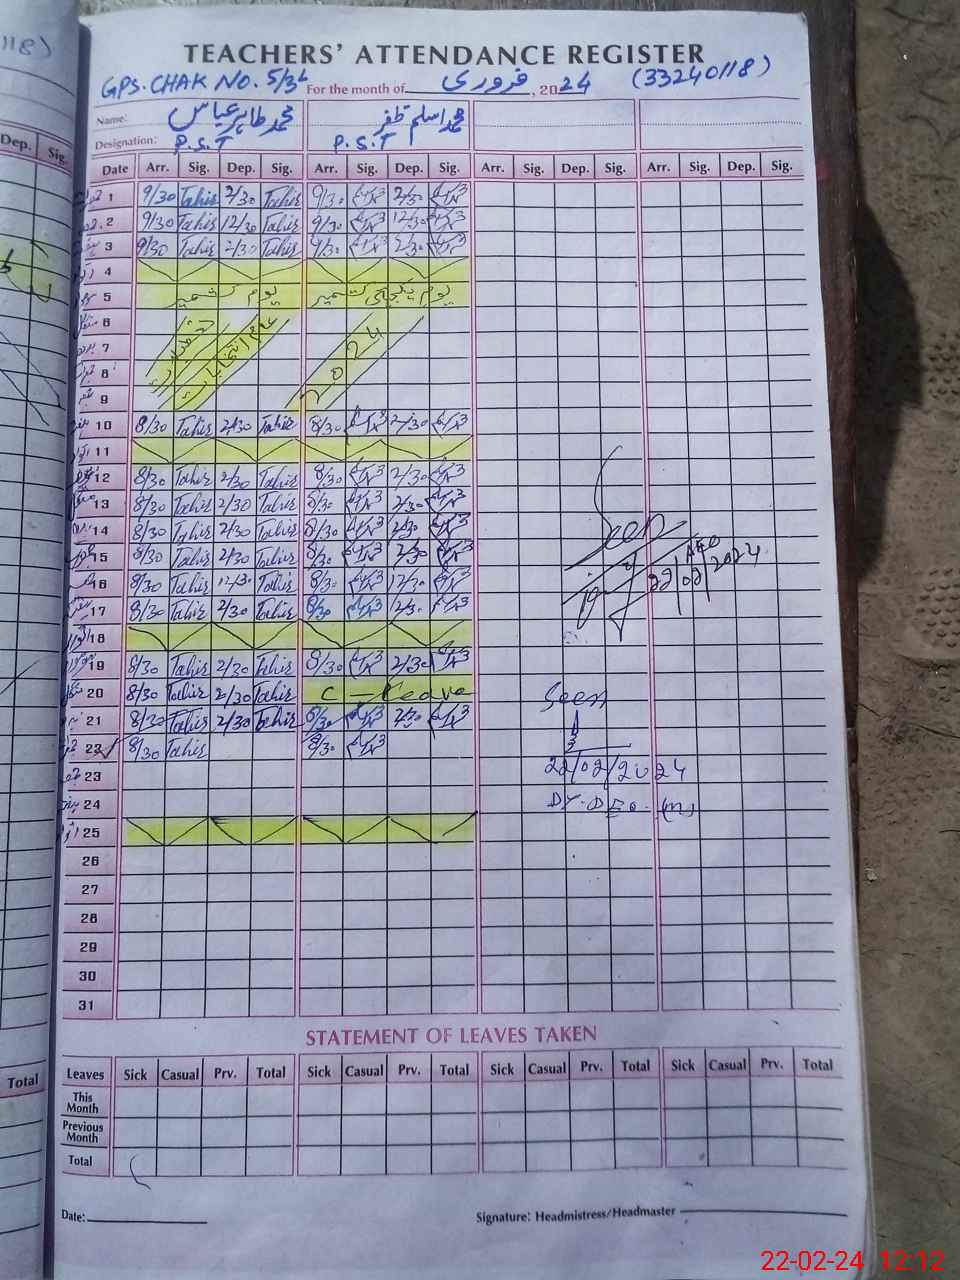 118)
TEACHERS' ATTENDANCE REGISTER
GPS. CHAK NO. 5/3L For the month of فروری, 2024 (33240118)
Name: محمد طاہر عباس محمد اسلم ظفر
Designation: P.S.T P.S.T
Dep. Sig.
Date Arr. Sig. Dep. Sig. Arr. Sig. Dep. Sig. Arr. Sig. Dep. Sig. Arr. Sig. Dep. Sig.
1 9/30 Tahir 2/30 Tahir 9/30 2/30
2 9/30 Tahir 12/30 Tahir 9/30 12/30
3 9/30 Tahir 2/30 Tahir 9/30 2/30
4
5 یوم کشمیر یوم یکجہتی کشمیر
6
7 عام انتخابات 2024
8
9
10 8/30 Tahir 2/30 Tahir 8/30 2/30
11
12 8/30 Tahir 2/30 Tahir 8/30 2/30
13 8/30 Tahir 2/30 Tahir 8/30 2/30
14 8/30 Tahir 2/30 Tahir 8/30 2/30
Seen
15 8/30 Tahir 2/30 Tahir 8/30 2/30
AEO
22/02/2024
16 8/30 Tahir 12/30 Tahir 8/30 12/30
17 8/30 Tahir 2/30 Tahir 8/30 2/30
18
19 8/30 Tahir 2/30 Tahir 8/30 2/30
20 8/30 Tahir 2/30 Tahir C - Leave
Seen
21 8/30 Tahir 2/30 Tahir 8/30 2/30
22 8/30 Tahir 8/30
23
22/02/2024
24
DY. DEO. (M)
25
26
27
28
29
30
31
STATEMENT OF LEAVES TAKEN
Leaves Sick Casual Prv. Total Sick Casual Prv. Total Sick Casual Prv. Total Sick Casual Prv. Total
Total
This Month
Previous Month
Total
Date: Signature: Headmistress/Headmaster
22-02-24 12:12